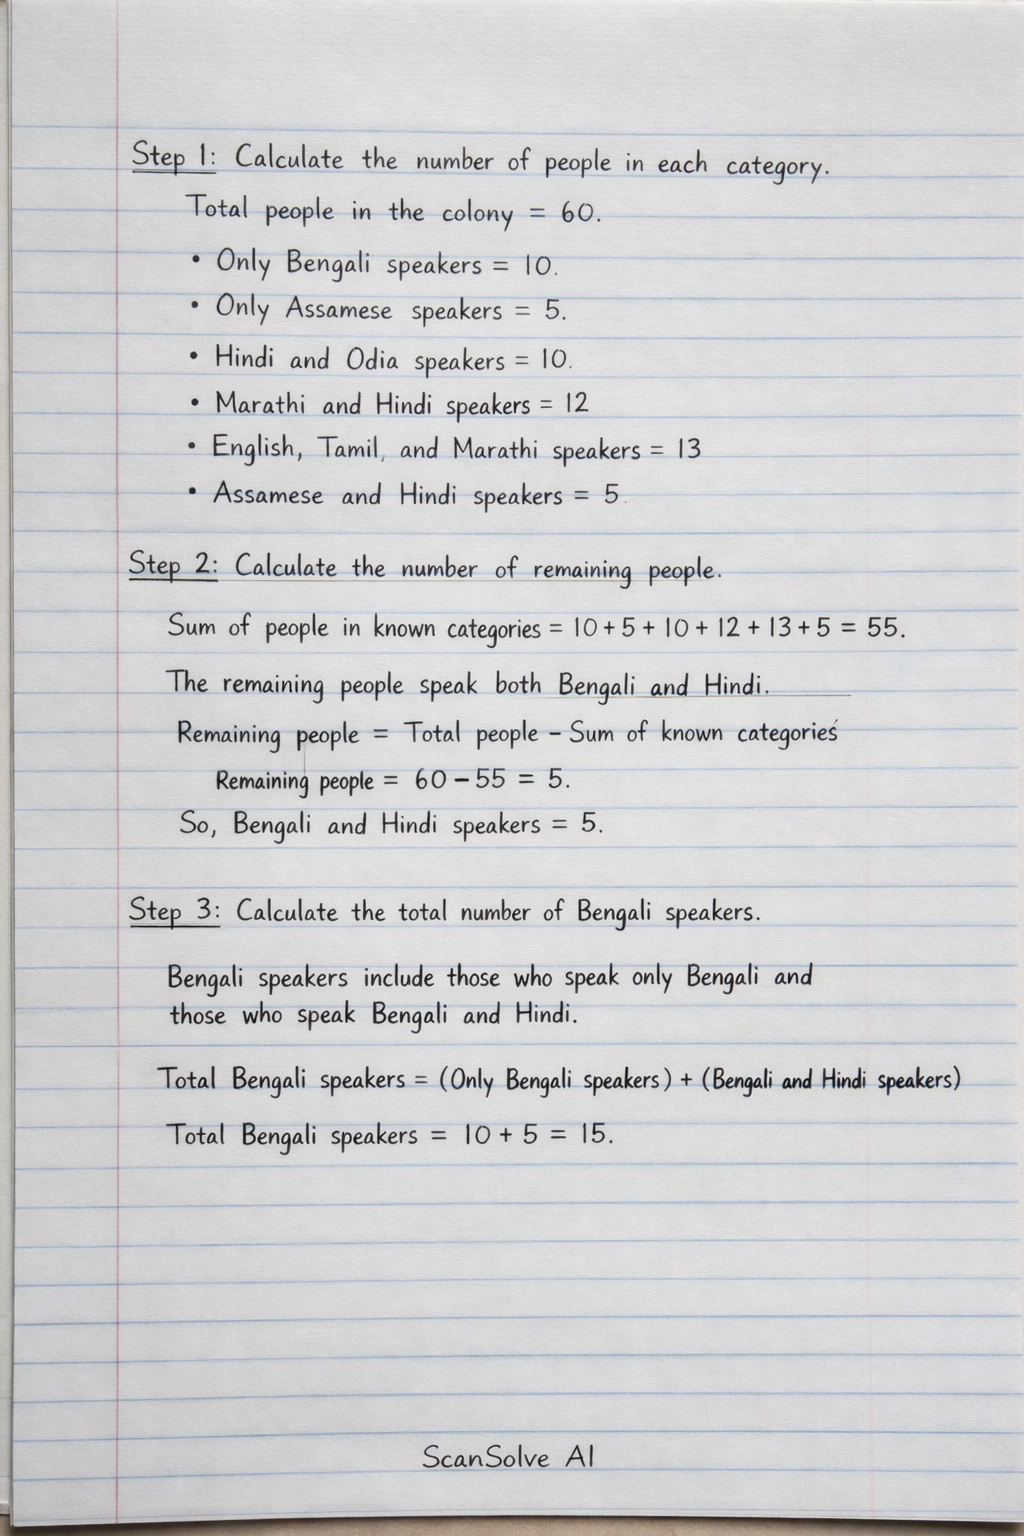 Step 1: Calculate the number of people in each category.
Total people in the colony = 60.
• Only Bengali speakers = 10.
• Only Assamese speakers = 5.
• Hindi and Odia speakers = 10.
• Marathi and Hindi speakers = 12
• English, Tamil, and Marathi speakers = 13
• Assamese and Hindi speakers = 5.
Step 2: Calculate the number of remaining people.
Sum of people in known categories = 10 + 5 + 10 + 12 + 13 + 5 = 55.
The remaining people speak both Bengali and Hindi.
Remaining people = Total people – Sum of known categories
Remaining people = 60 – 55 = 5.
So, Bengali and Hindi speakers = 5.
Step 3: Calculate the total number of Bengali speakers.
Bengali speakers include those who speak only Bengali and
those who speak Bengali and Hindi.
Total Bengali speakers = (Only Bengali speakers) + (Bengali and Hindi speakers)
Total Bengali speakers = 10 + 5 = 15.
ScanSolve AI